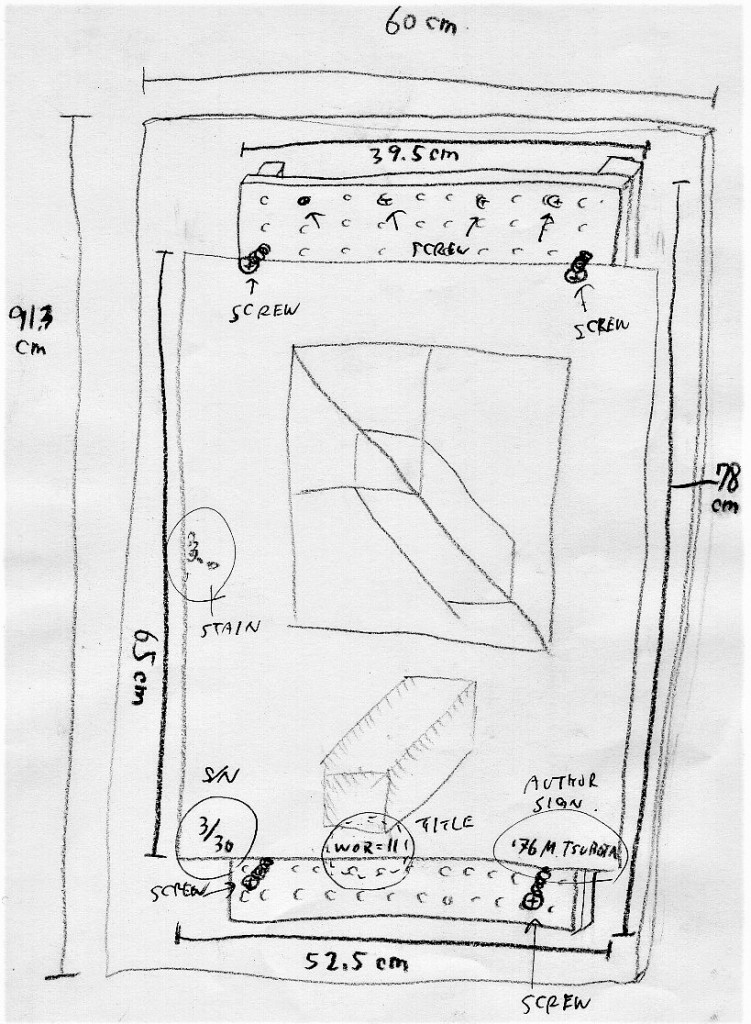 60 cm
39.5 cm
SCREW
SCREW
SCREW
913
cm
78
cm
STAIN
65 cm
S/N
3/30
TITLE
AUTHOR
SIGN.
'76 M. TSUBOTA
SCREW
52.5 cm
SCREW